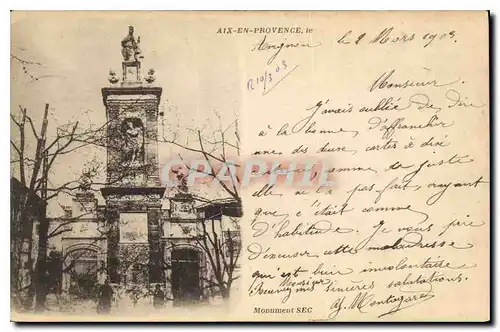 AIX-EN-PROVENCE, le
Avignon le 2 Mars 1903
R 10/3 03
Monsieur
J'avais oublié de dire
à la bonne d'affranchir
une des deux cartes à dix
comme de juste
elle ne l'a pas fait, croyant
que c'était comme
d'habitude. Je vous prie
d'excuser cette maladresse
qui est bien involontaire
Recevez Monsieur mes sincères salutations.
CPHRAPIL
Monument SEC